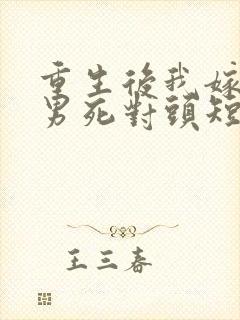 重生後我嫁
男死對頭短
王三春